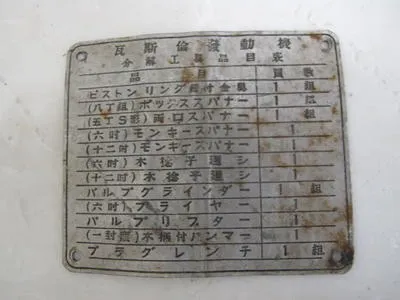 瓦斯倫發動機
分解工具品目表
品目 員數
ピストンリング取付金具 1組
(八丁組)ボックススパナー 1組
(五丁S形)両口スパナー 1組
(六吋)モンキースパナー 1
(十二吋)モンキースパナー 1
(六吋)木捻子廻シ 1
(十二吋)木捻子廻シ 1
バルブグラインダー 1組
(六吋)プライヤー 1
バルブリフター 1
(一封度)木柄付ハンマー 1
プラグレンチ 1組